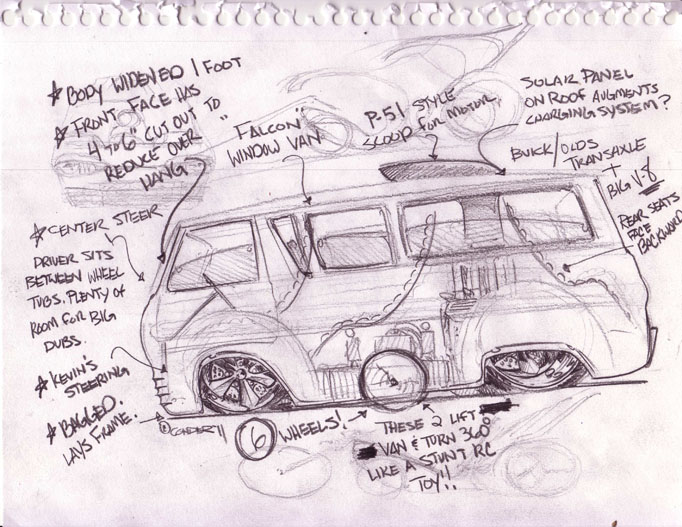 ☆ BODY WIDENED 1 FOOT
☆ FRONT FACE HAS
4" TO 6" CUT OUT TO
REDUCE OVER
HANG
"FALCON"
WINDOW VAN
P-51 STYLE
SCOOP FOR MOTOR
SOLAR PANEL
ON ROOF AUGMENTS
CHARGING SYSTEM?
BUICK/OLDS
TRANSAXLE
+
BIG V-8
REAR SEATS
FACE
BACKWARD
☆ CENTER STEER
DRIVER SITS
BETWEEN WHEEL
TUBS. PLENTY OF
ROOM FOR BIG
DUBS.
☆ KEVIN'S
STEERING
☆ BAGGED.
LAYS FRAME.
© CONDER 11
6 WHEELS!
THESE 2 LIFT
VAN & TURN 360°
LIKE A STUNT RC
TOY!!